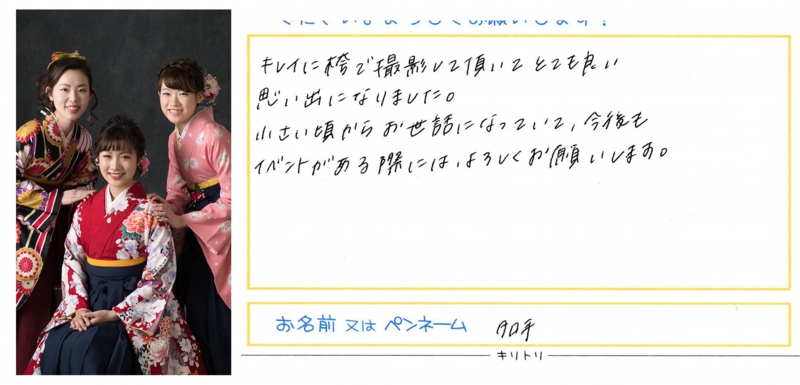 キレイに袴で撮影して頂いてとても良い
思い出になりました。
小さい頃からお世話になっていて、今後も
イベントがある際には、よろしくお願いします。
お名前 又は ペンネーム
キリトリ